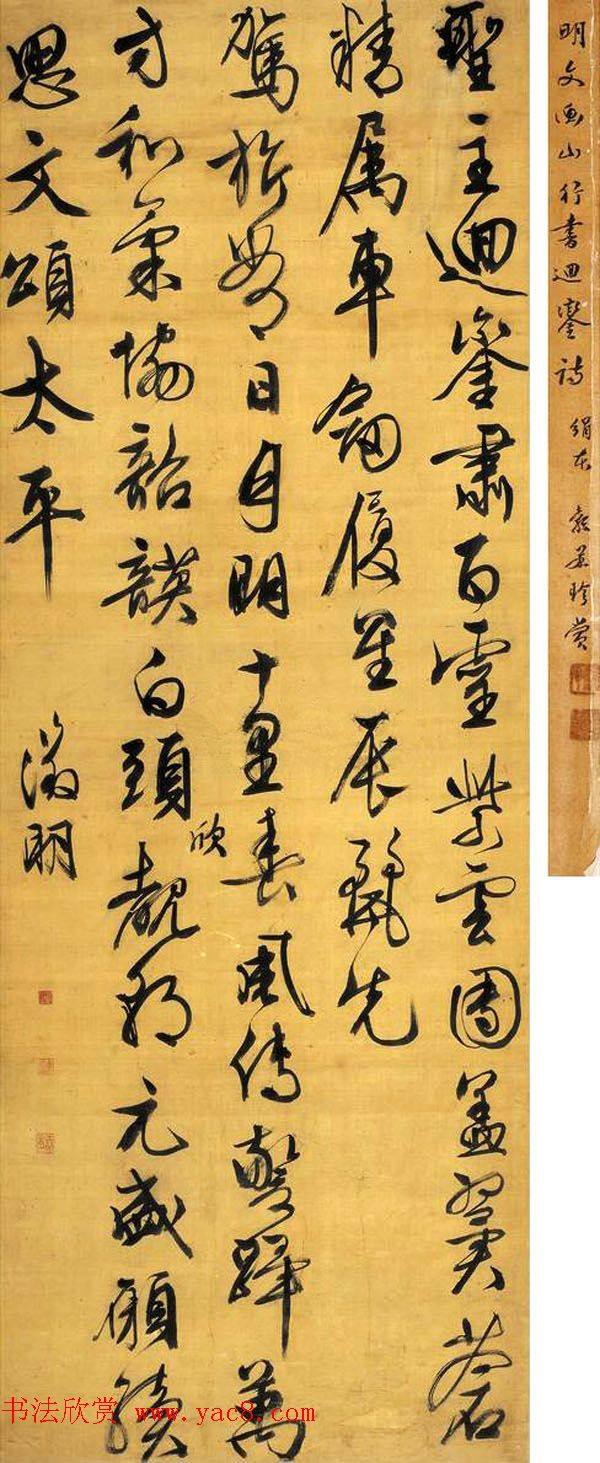 聖主迴鑾肅百靈紫雲團蓋翼蒼
精属車劔履星辰麗先
駕旂常日月明十里春風傳警蹕萬
方和氣協韶頀白頭欣覩朝元盛願續
思文頌太平
徵明
明文衡山行書迴鑾詩 絹本
珍賞
书法欣赏 www.yac8.com